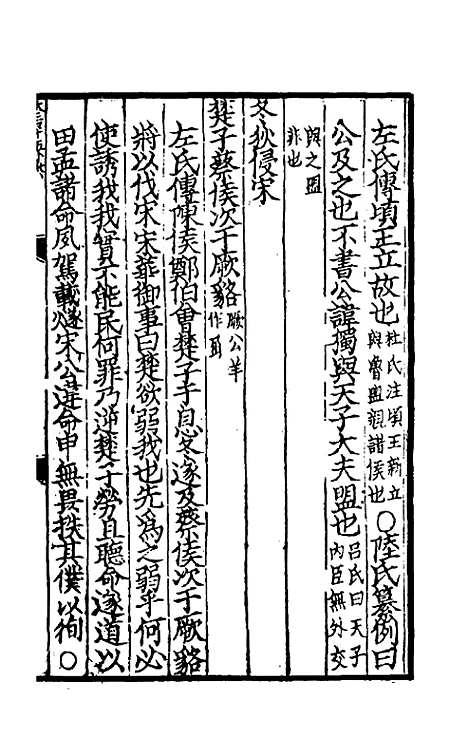 左氏傳頃王立故也杜氏注頃王新立與魯盟親諸侯也○陸氏纂例曰
公及之也不書公諱獨與天子大夫盟也吕氏曰天子內臣無外交
與之盟非也
冬狄侵宋
楚子蔡侯次于厥貉厥公羊作屈
左氏傳陳侯鄭伯會楚子于息冬遂及蔡侯次于厥貉
將以伐宋宋華御事曰楚欲弱我也先為之弱乎何必
使誘我我實不能民何罪乃逆楚子勞且聽命遂道以
田孟諸命夙駕載燧宋公違命申無畏抶其僕以徇○